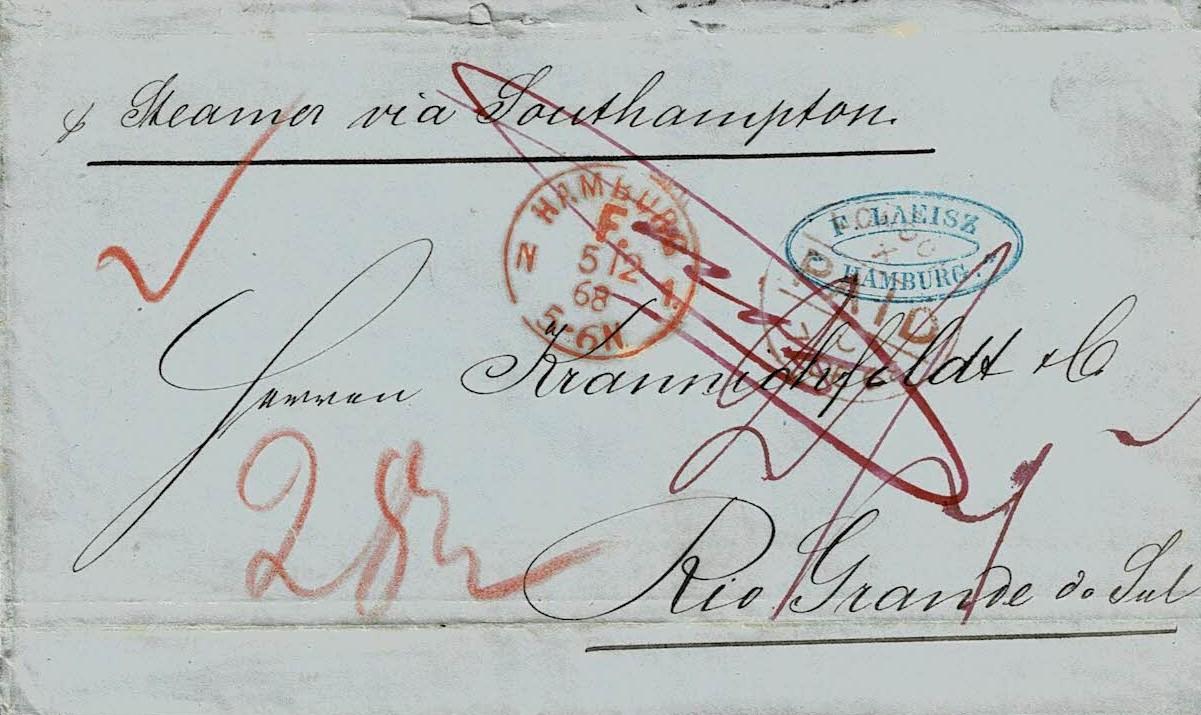 p Steamer via Southampton.
HAMBURG
F.
N 1.
5 12
68
5-6N
F. LAEISZ
HAMBURG.
PAID
Herren Krannichfeldt & C
28
Rio Grande do Sul